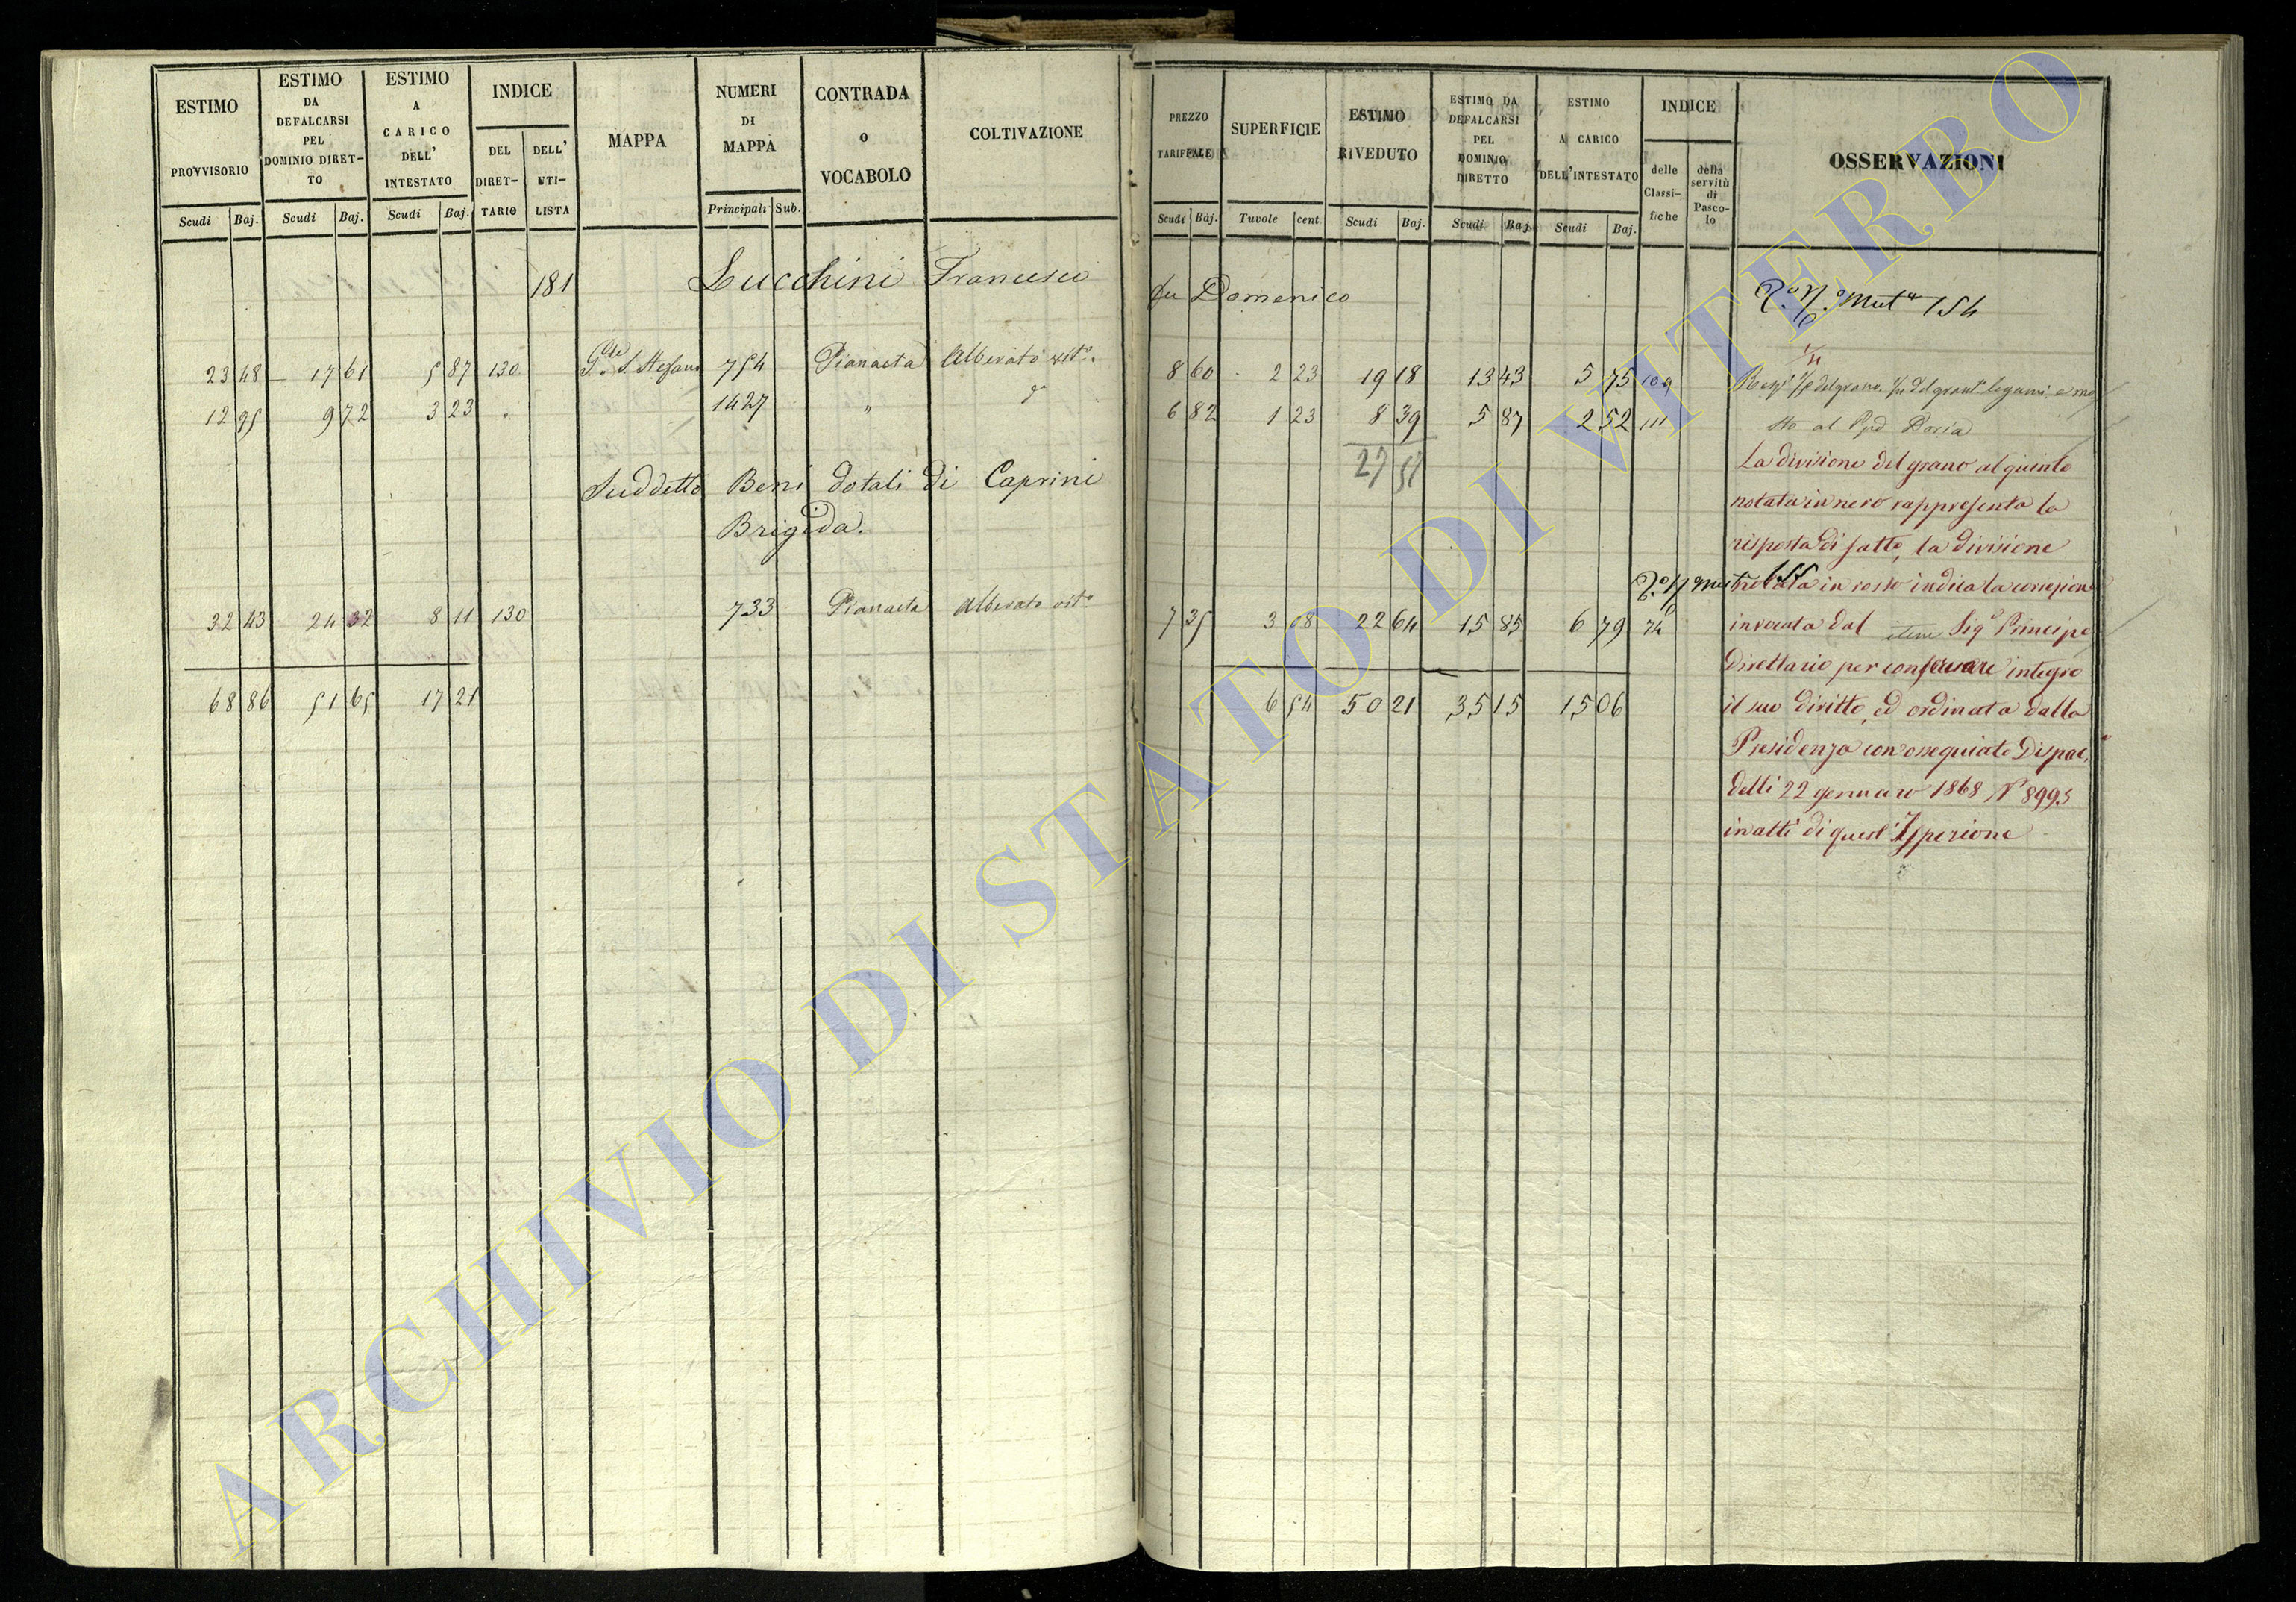 ESTIMO PROVVISORIO
Scudi Baj.
ESTIMO DA DEFALCARSI PEL DOMINIO DIRET-TO
Scudi Baj.
ESTIMO A CARICO DELL' INTESTATO
Scudi Baj.
INDICE
DEL DIRET-TARIO
DELL' UTI-LISTA
MAPPA
NUMERI DI MAPPA
Principali Sub.
CONTRADA O VOCABOLO
COLTIVAZIONE
PREZZO TARIFFALE
Scudi Baj.
SUPERFICIE
Tavole cent
ESTIMO RIVEDUTO
Scudi Baj.
ESTIMO DA DEFALCARSI PEL DOMINIO DIRETTO
Scudi Baj.
ESTIMO A CARICO DELL'INTESTATO
Scudi Baj.
INDICE
delle Classi-fiche
della servitù di Pasco-lo
OSSERVAZIONI
181 Lucchini Francesco fu Domenico
Mutª 154
23 48 17 61 5 87 130 S. Stefano 754 Pianaeta Alberato vitº. 8 60 2 23 19 18 13 43 5 75 109
1/4
1/5 del grano legumi e mo
12 95 9 72 3 23 " 1427 " dº 6 82 1 23 8 39 5 87 2 52 111
sto al Doria
27 57
Suddetto Beni dotali di Caprini
Brigida.
La divisione del grano al quinto
notata in nero rappresenta la
risposta di fatto, la divisione
155
notata in rosso indica la correzione
32 43 24 32 8 11 130 733 Pianaeta Alberato vitº 7 35 3 08 22 64 15 85 6 79 74
invocata dal Sigº Principe
Direttario per conservare integro
68 86 51 65 17 21 6 54 50 21 35 15 15 06
il suo diritto, ed ordinata dalla
Presidenza con ossequiato Dispac.
delli 22 gennaro 1868 Nº 8995
in atti di quest'Ispezione
ARCHIVIO DI STATO DI VITERBO